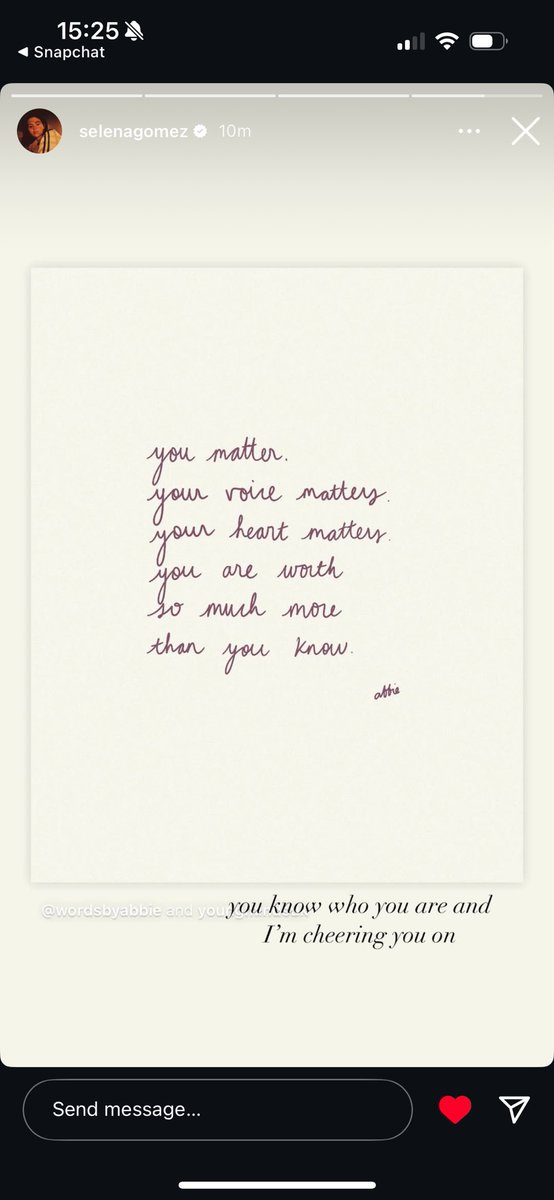 15:25
◀ Snapchat
selenagomez 10m
you matter.
your voice matters.
your heart matters.
you are worth
so much more
than you know.
abbie
@wordsbyabbie and
you know who you are and
I'm cheering you on
Send message...